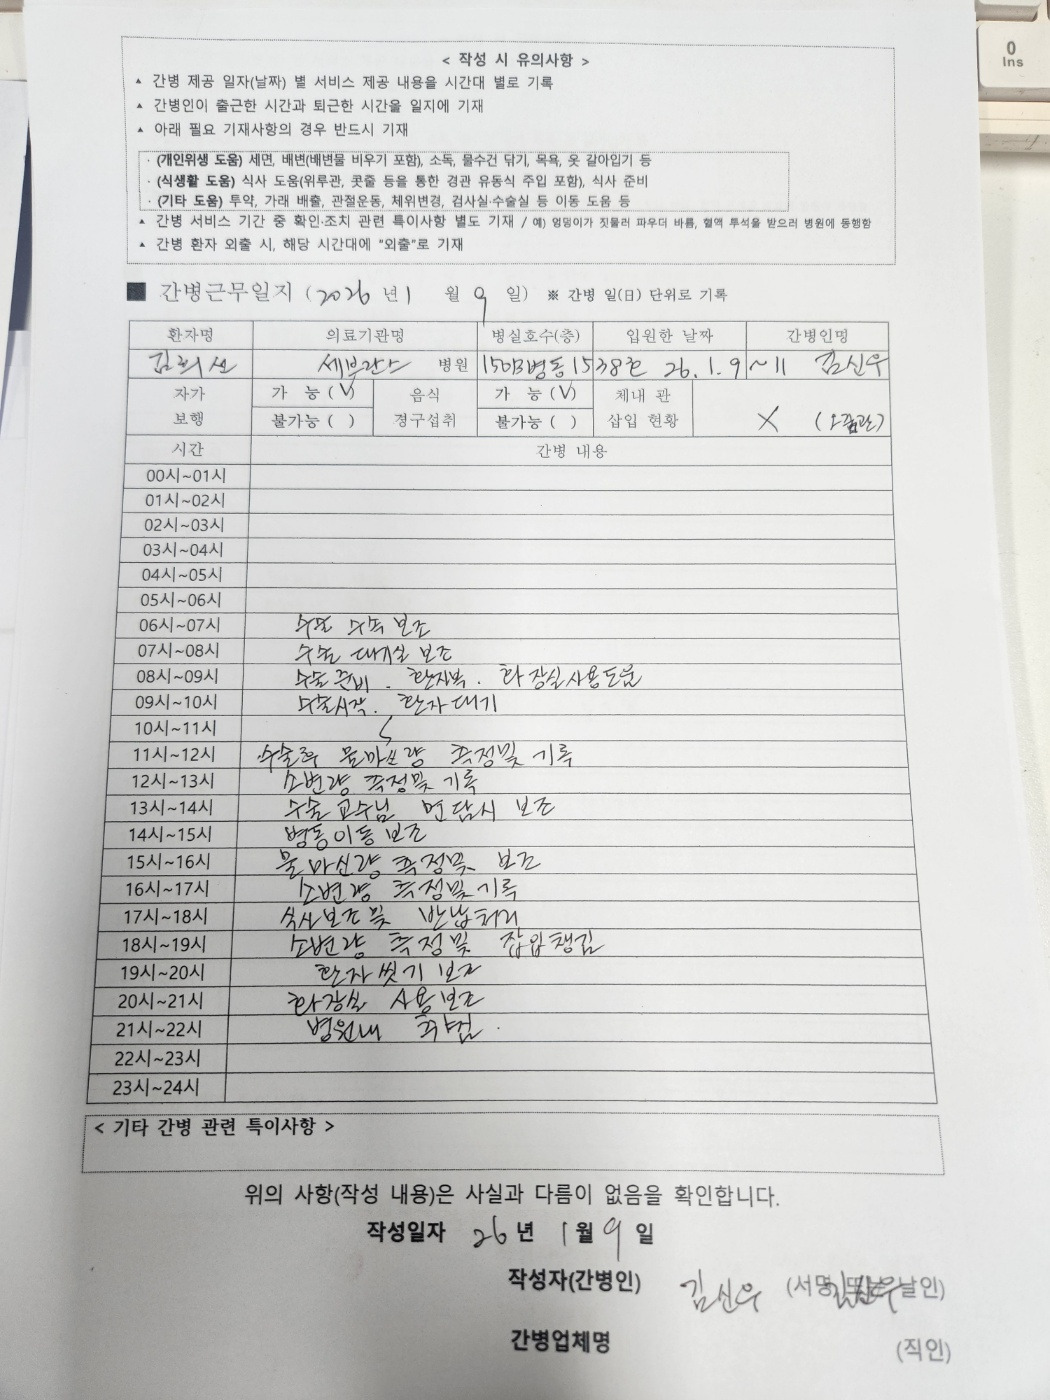 0
Ins
< 작성 시 유의사항 >
▲ 간병 제공 일자(날짜) 별 서비스 제공 내용을 시간대 별로 기록
▲ 간병인이 출근한 시간과 퇴근한 시간을 일지에 기재
▲ 아래 필요 기재사항의 경우 반드시 기재
· (개인위생 도움) 세면, 배변(배변물 비우기 포함), 소독, 물수건 닦기, 목욕, 옷 갈아입기 등
· (식생활 도움) 식사 도움(위루관, 콧줄 등을 통한 경관 유동식 주입 포함), 식사 준비
· (기타 도움) 투약, 가래 배출, 관절운동, 체위변경, 검사실·수술실 등 이동 도움 등
▲ 간병 서비스 기간 중 확인·조치 관련 특이사항 별도 기재 / 예) 엉덩이가 짓물러 파우더 바름, 혈액 투석을 받으러 병원에 동행함
▲ 간병 환자 외출 시, 해당 시간대에 "외출"로 기재
■ 간병근무일지 (2026 년 1 월 9 일) ※ 간병 일(日) 단위로 기록
환자명 의료기관명 병실호수(층) 입원한 날짜 간병인명
김희선 세브란스 병원 150B병동1538호 26.1.9~11 김신우
자가 보행 가 능 (V) 음식 경구섭취 가 능 (V) 체내 관 삽입 현황 X
불가능 ( ) 불가능 ( )
시간 간병 내용
00시~01시
01시~02시
02시~03시
03시~04시
04시~05시
05시~06시
06시~07시 수술 수속 보조
07시~08시 수술 대기실 보조
08시~09시 수술준비 . 환자복 . 화장실사용도움
09시~10시 수술시작. 환자대기
10시~11시
11시~12시 수술후 물마신량 측정및 기록
12시~13시 소변량 측정및 기록
13시~14시 수술 교수님 면담시 보조
14시~15시 병동이동 보조
15시~16시 물마신량 측정및 보조
16시~17시 소변량 측정및 기록
17시~18시 식사보조및 반납처리
18시~19시 소변량 측정및 챙김
19시~20시 환자씻기 보조
20시~21시 화장실 사용보조
21시~22시 병원내
22시~23시
23시~24시
< 기타 간병 관련 특이사항 >
위의 사항(작성 내용)은 사실과 다름이 없음을 확인합니다.
작성일자 26 년 1 월 9 일
작성자(간병인) 김신우 (서명 또는 날인) 김신우
간병업체명 (직인)